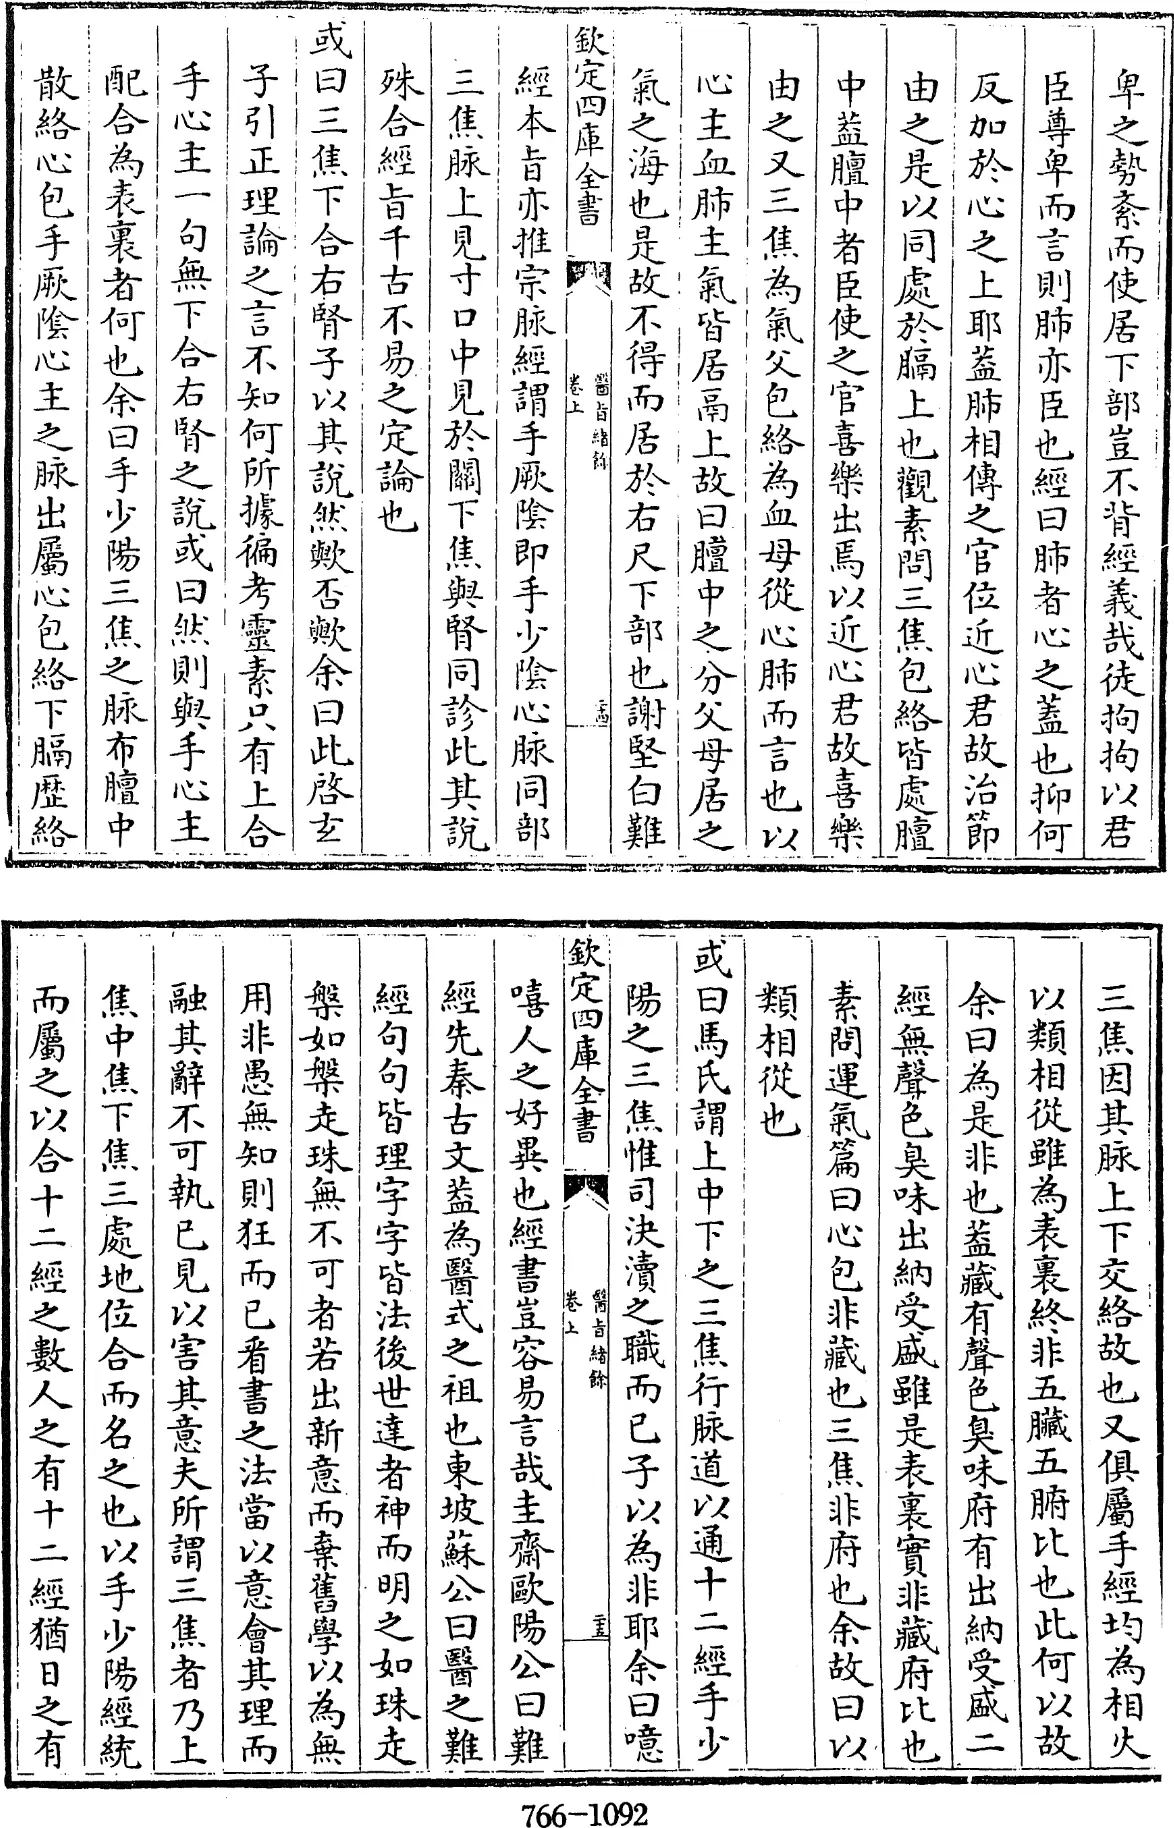 卑之勢紊而使居下部豈不背經義哉徒拘拘以君
臣尊卑而言則肺亦臣也經曰肺者心之蓋也抑何
反加於心之上耶葢肺相傳之官位近心君故治節
由之是以同處於膈上也觀素問三焦包絡皆處膻
中葢膻中者臣使之官喜樂出焉以近心君故喜樂
由之又三焦為氣父包絡為血母從心肺而言也以
心主血肺主氣皆居鬲上故曰膻中之分父母居之
氣之海也是故不得而居於右尺下部也謝堅白難
欽定四庫全書
醫旨緒餘
卷上
二十四
經本旨亦推宗脉經謂手厥陰即手少陰心脉同部
三焦脉上見寸口中見於關下焦與腎同診此其説
殊合經旨千古不易之定論也
或曰三焦下合右腎子以其說然歟否歟余曰此啓玄
子引正理論之言不知何所據徧考靈素只有上合
手心主一句無下合右腎之說或曰然則與手心主
配合為表裏者何也余曰手少陽三焦之脉布膻中
散絡心包手厥陰心主之脉出屬心包絡下膈歴絡
三焦因其脉上下交絡故也又俱屬手經均為相火
以類相從雖為表裏終非五臟五腑比也此何以故
余曰為是非也葢藏有聲色臭味府有出納受盛二
經無聲色臭味出納受盛雖是表裏實非藏府比也
素問運氣篇曰心包非藏也三焦非府也余故曰以
類相從也
或曰馬氏謂上中下之三焦行脉道以通十二經手少
陽之三焦惟司決瀆之職而已子以為非耶余曰噫
欽定四庫全書
醫旨緒餘
卷上
二十五
嘻人之好異也經書豈容易言哉圭齋歐陽公曰難
經先秦古文葢為醫式之祖也東坡蘇公曰醫之難
經句句皆理字字皆法後世達者神而明之如珠走
槃如槃走珠無不可者若出新意而棄舊學以為無
用非愚無知則狂而已看書之法當以意會其理而
融其辭不可執已見以害其意夫所謂三焦者乃上
焦中焦下焦三處地位合而名之也以手少陽經統
而屬之以合十二經之數人之有十二經猶日之有
766-1092